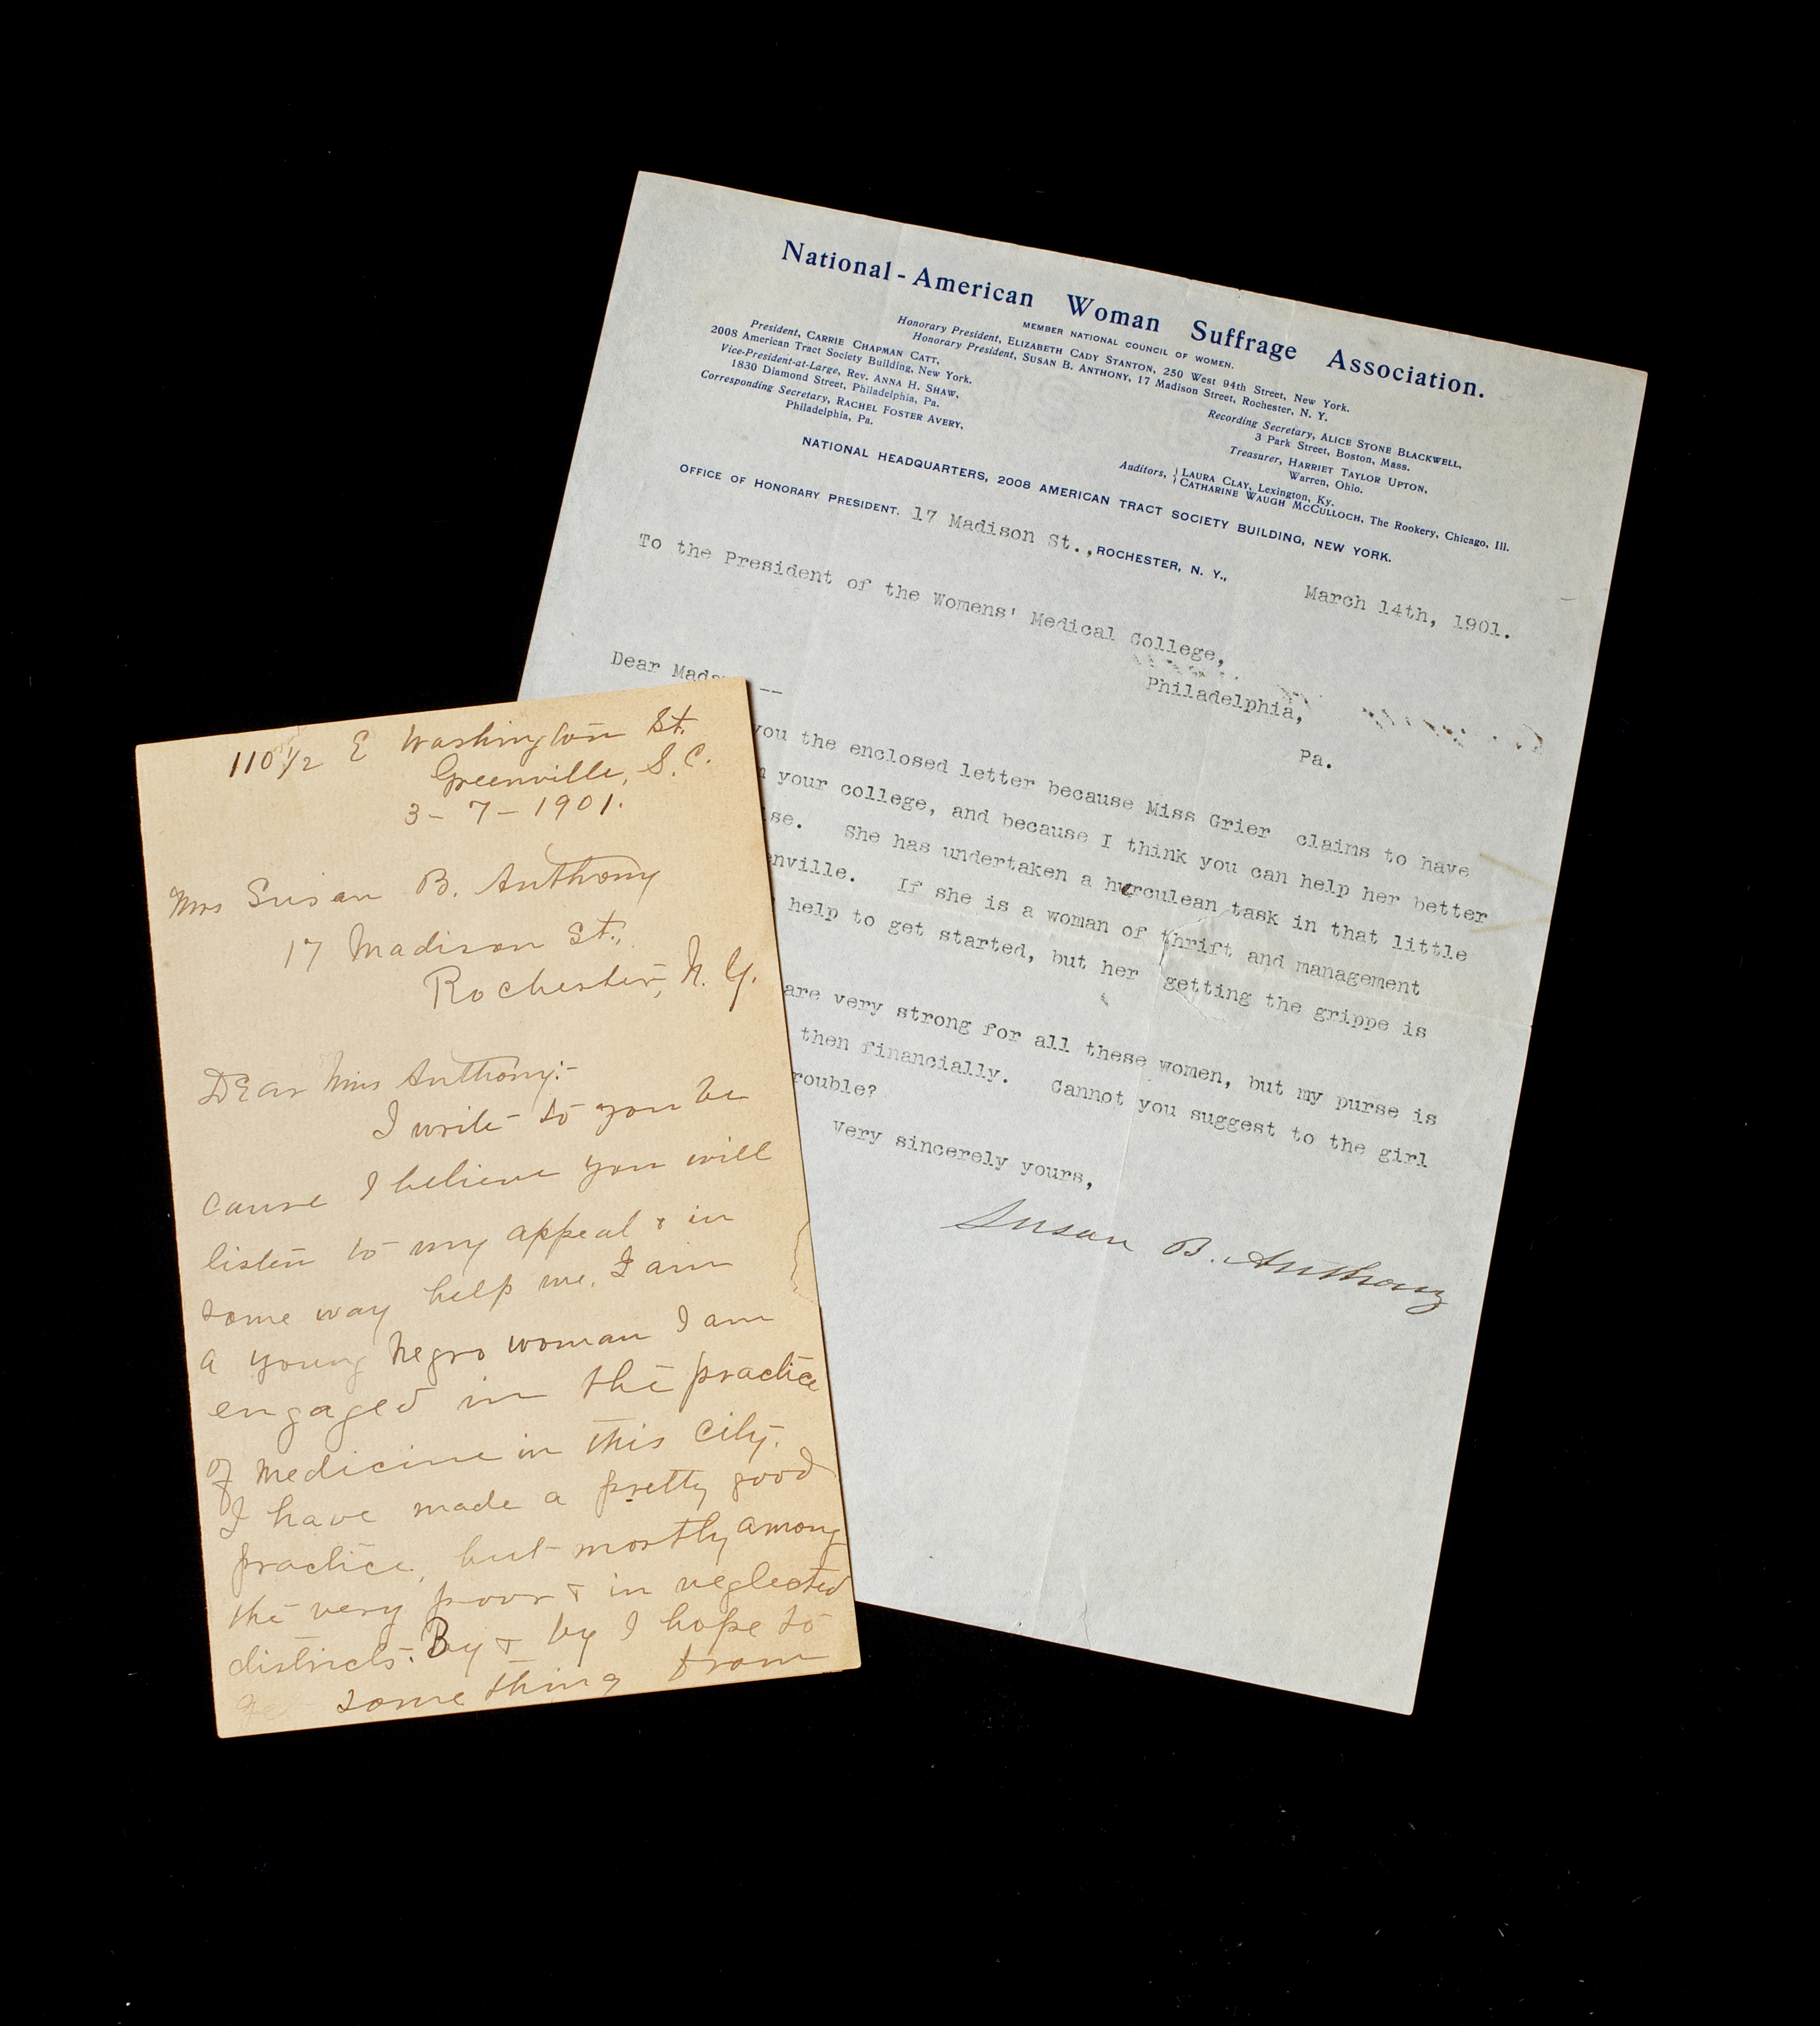 National-American Woman Suffrage Association.
MEMBER NATIONAL COUNCIL OF WOMEN.
Honorary President, ELIZABETH CADY STANTON, 250 West 94th Street, New York.
Honorary President, SUSAN B. ANTHONY, 17 Madison Street, Rochester, N. Y.
President, CARRIE CHAPMAN CATT,
2008 American Tract Society Building, New York.
Vice-President-at-Large, Rev. ANNA H. SHAW,
1830 Diamond Street, Philadelphia, Pa.
Corresponding Secretary, RACHEL FOSTER AVERY,
Philadelphia, Pa.
Recording Secretary, ALICE STONE BLACKWELL,
3 Park Street, Boston, Mass.
Treasurer, HARRIET TAYLOR UPTON,
Warren, Ohio.
Auditors, LAURA CLAY, Lexington, Ky.
CATHARINE WAUGH MCCULLOCH, The Rookery, Chicago, Ill.
NATIONAL HEADQUARTERS, 2008 AMERICAN TRACT SOCIETY BUILDING, NEW YORK.
OFFICE OF HONORARY PRESIDENT. 17 Madison St., ROCHESTER, N. Y.,
March 14th, 1901.
To the President of the Womens' Medical College,
Philadelphia,
Pa.
Dear --
you the enclosed letter because Miss Grier claims to have
your college, and because I think you can help her better
She has undertaken a herculean task in that little
enville. If she is a woman of thrift and management
help to get started, but her getting the grippe is
are very strong for all these women, but my purse is
then financially. Cannot you suggest to the girl
rouble?
Very sincerely yours,
Susan B. Anthony
110 1/2 E Washington St.
Greenville, S.C.
3-7-1901.
Mrs Susan B. Anthony
17 Madison St.,
Rochester, N.Y.
Dear Miss Anthony:-
I write to you be
cause I believe you will
listen to my appeal & in
some way help me. I am
a young Negro woman I am
engaged in the practice
of medicine in this city.
I have made a pretty good
practice, but mostly among
the very poor & in neglected
districts. By & by I hope to
get something from